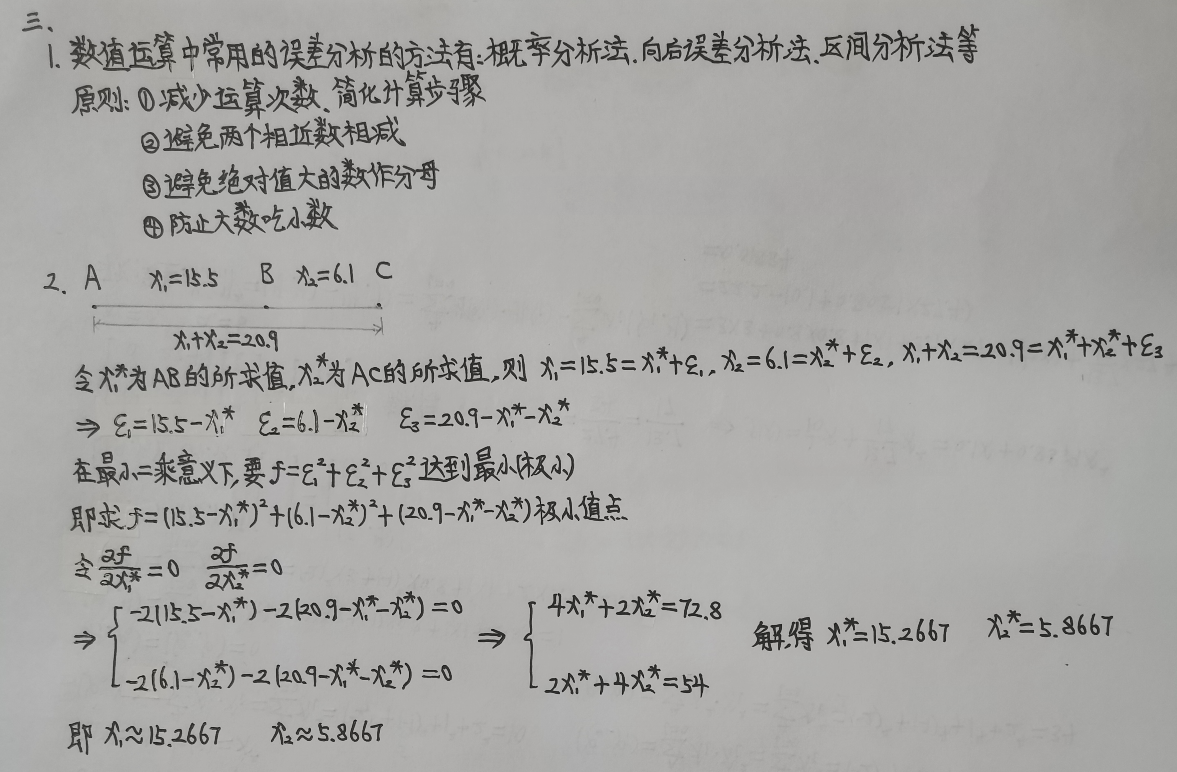 三、
1. 数值运算中常用的误差分析的方法有:概率分析法、向后误差分析法、区间分析法等
原则:①减少运算次数、简化计算步骤
②避免两个相近数相减
③避免绝对值大的数作分母
④防止大数吃小数
2. A x₁=15.5 B x₂=6.1 C
x₁+x₂=20.9
令x₁*为AB的所求值,x₂*为AC的所求值,则 x₁=15.5=x₁*+ε₁, x₂=6.1=x₂*+ε₂, x₁+x₂=20.9=x₁*+x₂*+ε₃
⇒ ε₁=15.5-x₁* ε₂=6.1-x₂* ε₃=20.9-x₁*-x₂*
在最小二乘意义下,要f=ε₁²+ε₂²+ε₃²达到最小(极小)
即求f=(15.5-x₁*)²+(6.1-x₂*)²+(20.9-x₁*-x₂*)极小值点
令 ∂f/∂x₁*=0 ∂f/∂x₂*=0
⇒ { -2(15.5-x₁*)-2(20.9-x₁*-x₂*)=0 ⇒ { 4x₁*+2x₂*=72.8 解得 x₁*=15.2667 x₂*=5.8667
-2(6.1-x₂*)-2(20.9-x₁*-x₂*)=0 2x₁*+4x₂*=54
即 x₁≈15.2667 x₂≈5.8667